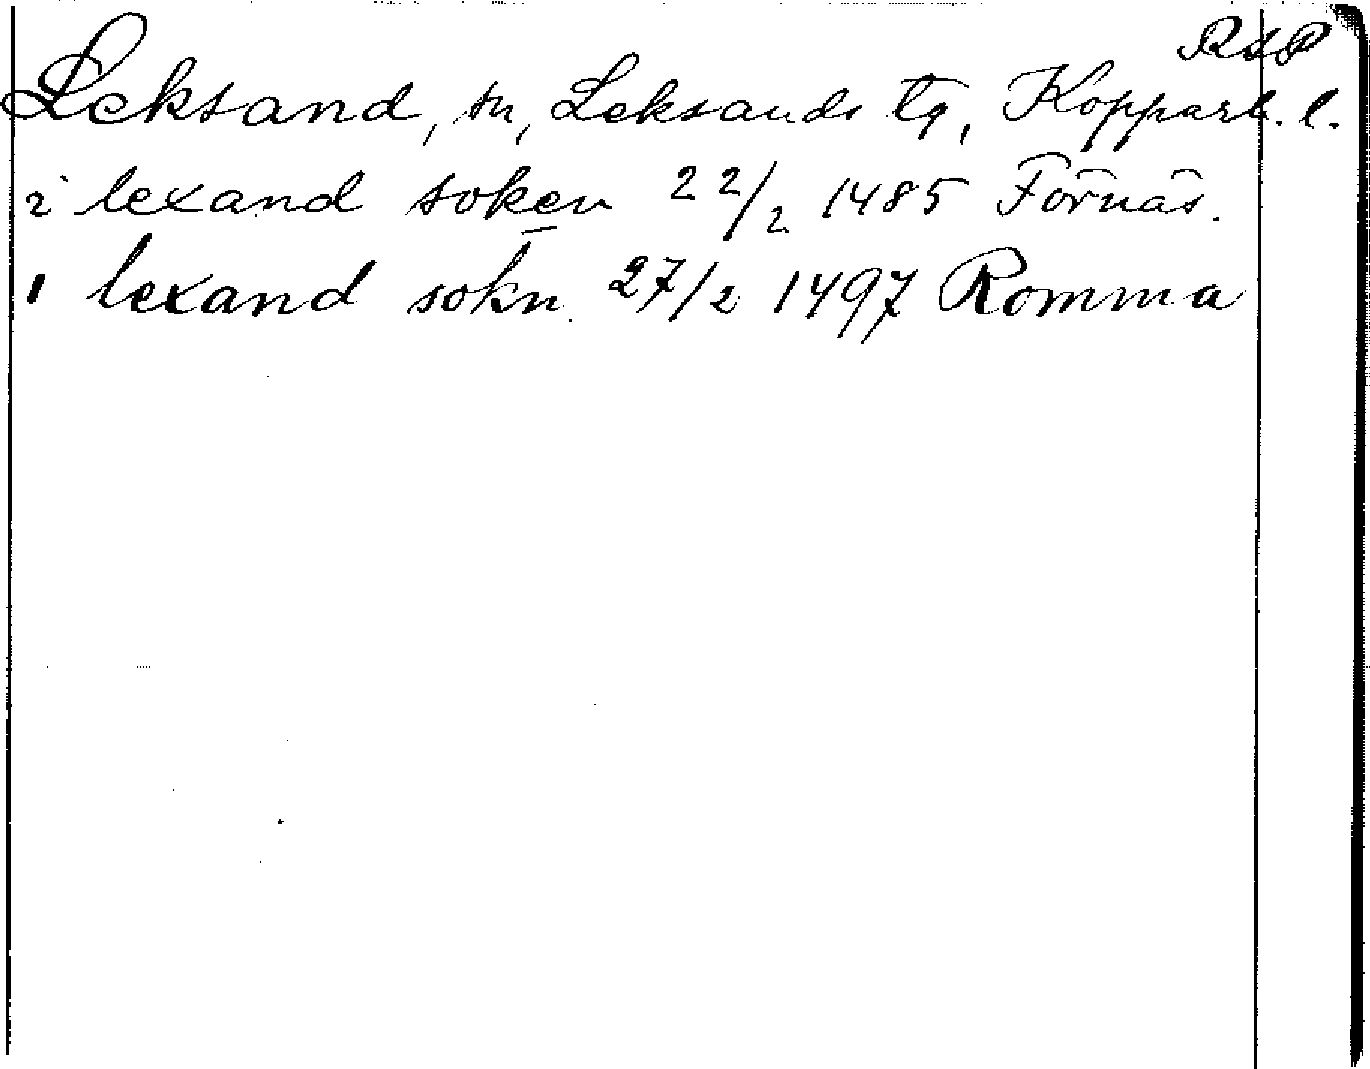 RAP
Leksand, sn, Leksands tg, Kopparb. l.
i lexand soken 22/2 1485 Fornäs.
I lexand sokn 27/2 1497 Romma